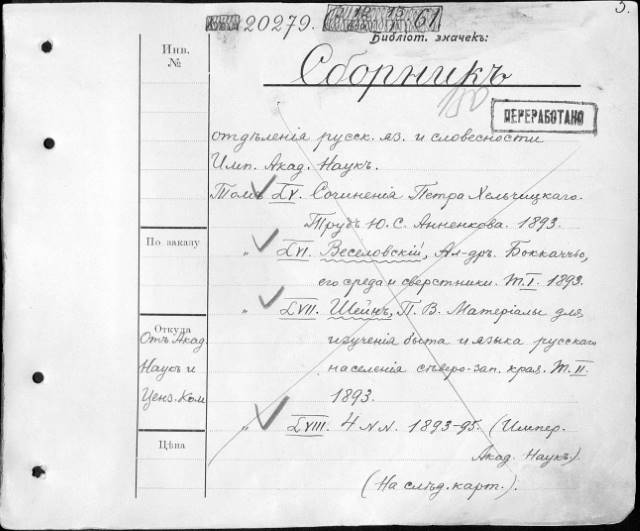 5.
20279.
61
Библіот. значекъ:
Инв.
№
Сборникъ
ПЕРЕРАБОТАНО
отдѣленія русск. яз. и словесности
Имп. Акад. Наукъ.
Томъ LV. Сочиненія Петра Хельчицкаго.
Трудъ Ю. С. Анненкова. 1893.
По заказу
„ LVI. Веселовскій, Ал-дръ. Боккаччьо,
его среда и сверстники. Т. I. 1893.
„ LVII. Шейнъ, П. В. Матеріалы для
Откуда
Отъ Акад.
изученія быта и языка русскаго
Наукъ и
населенія сѣверо-зап. края. Т. II.
Ценз. Ком
1893.
„ LVIII. 4 NN. 1893-95. (Импер.
Цѣна
Акад. Наукъ)
(На слѣд. карт.).